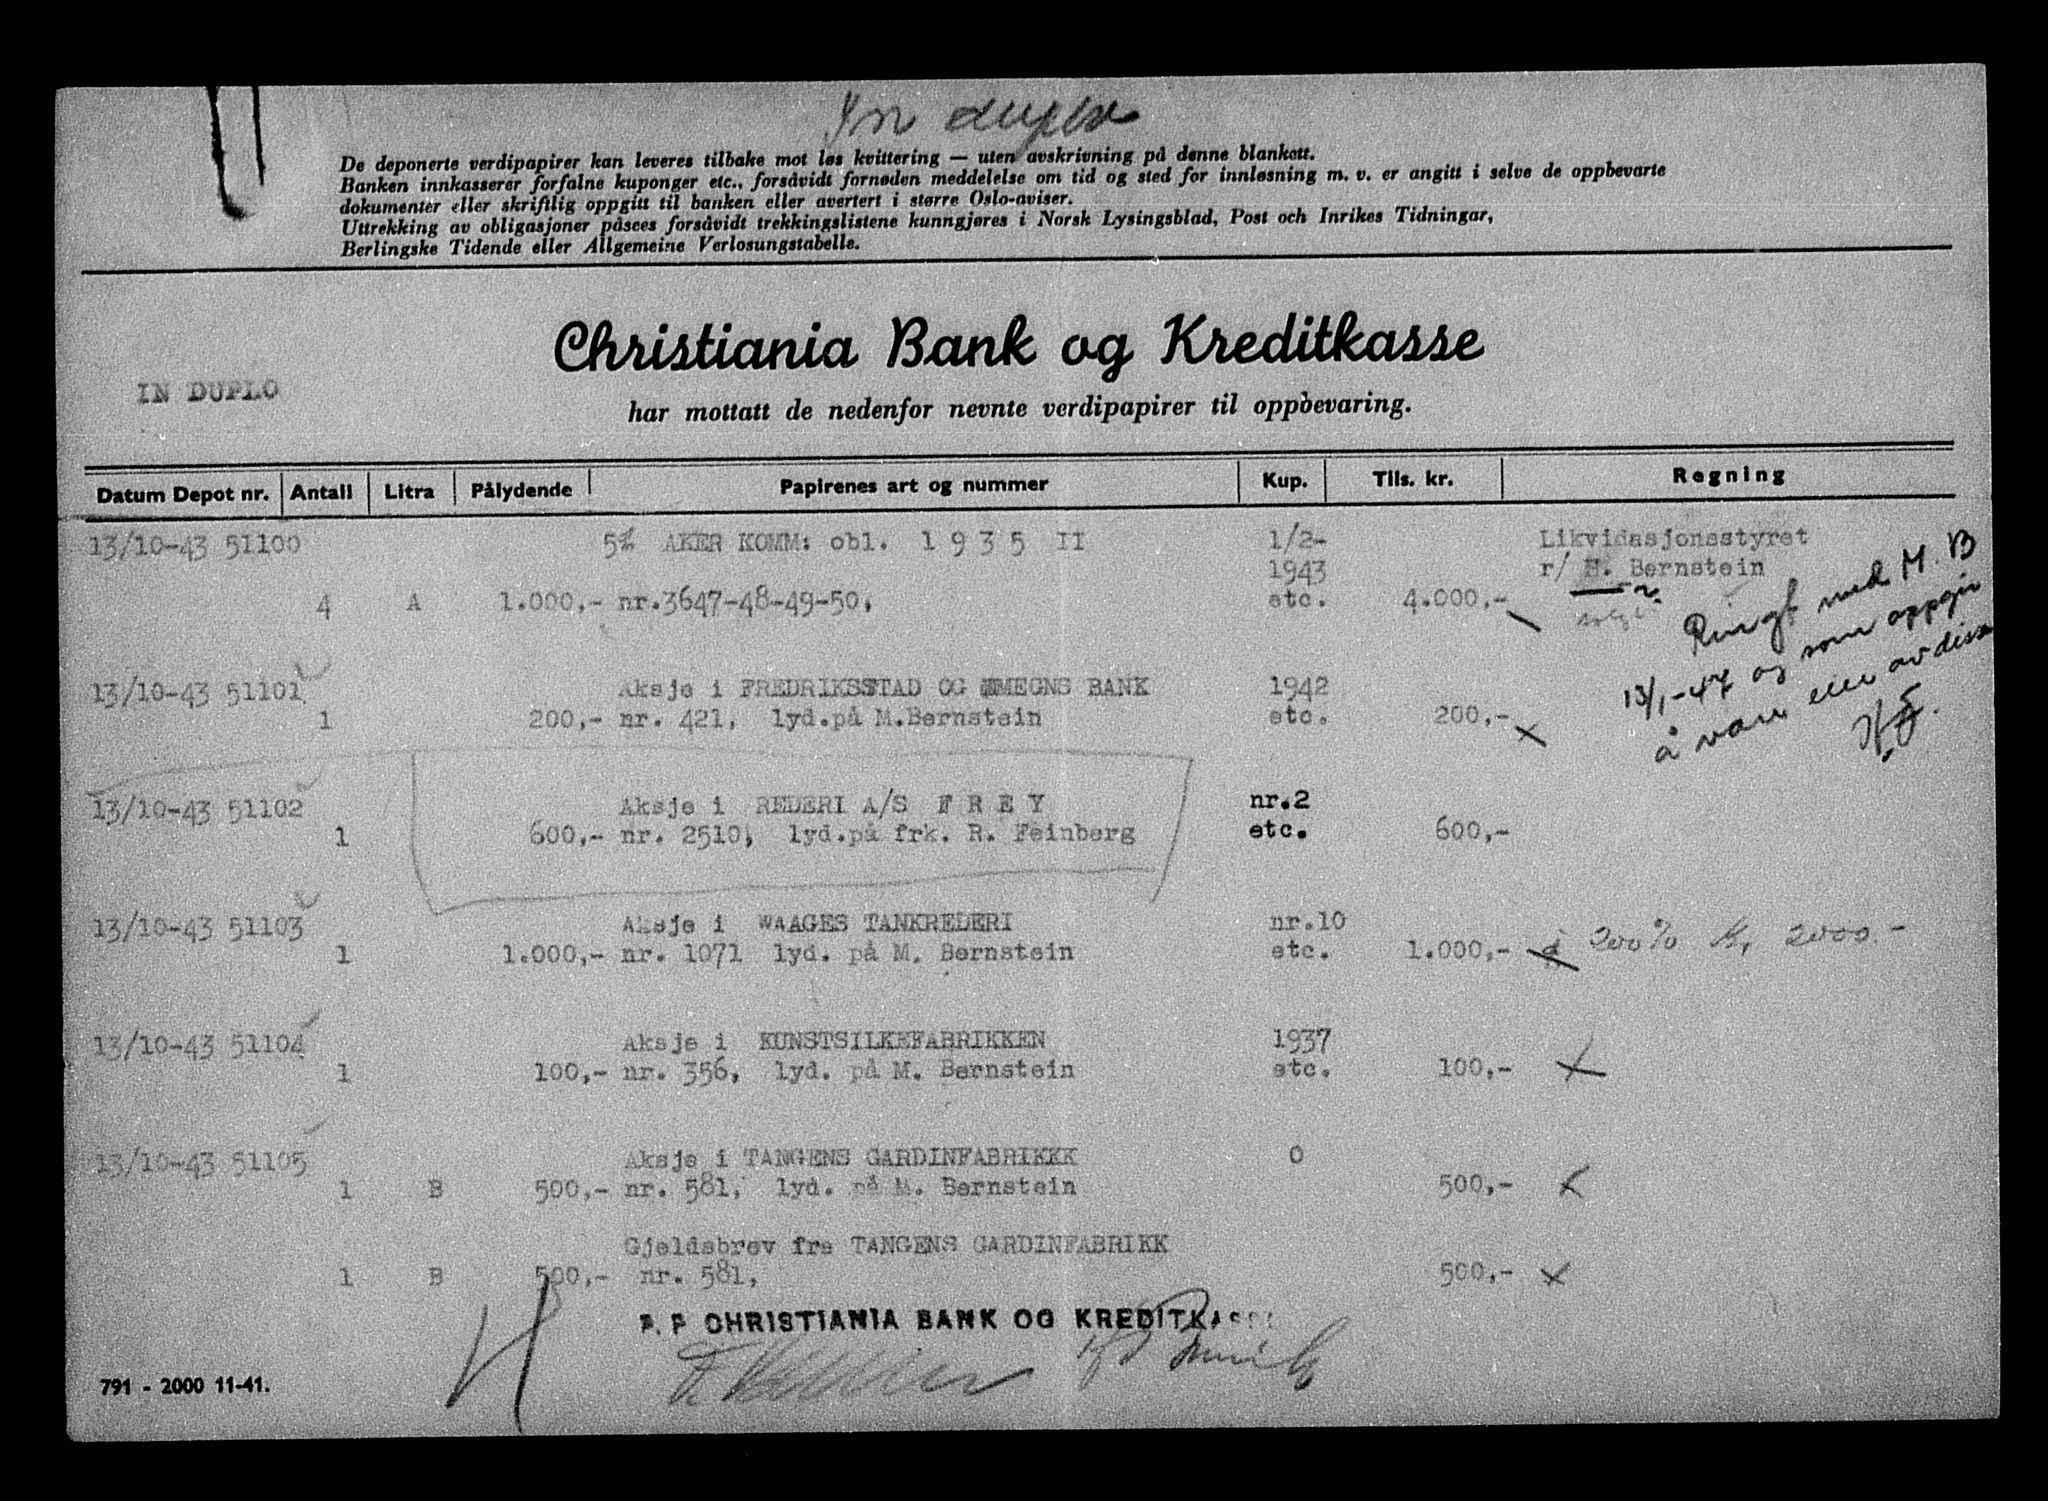 In duplo
De deponerte verdipapirer kan leveres tilbake mot løs kvittering — uten avskrivning på denne blankett.
Banken innkasserer forfalne kuponger etc., forsåvidt fornøden meddelelse om tid og sted for innløsning m. v. er angitt i selve de oppbevarte
dokumenter eller skriftlig oppgitt til banken eller avertert i større Oslo-aviser.
Uttrekking av obligasjoner påsees forsåvidt trekkingslistene kunngjøres i Norsk Lysingsblad, Post och Inrikes Tidningar,
Berlingske Tidende eller Allgemeine Verlosungstabelle.
Christiania Bank og Kreditkasse
IN DUPLO
har mottatt de nedenfor nevnte verdipapirer til oppbevaring.
Datum Depot nr. Antall Litra Pålydende Papirenes art og nummer Kup. Tils. kr. Regning
13/10-43 51100 5% AKER KOMM: obl. 1 9 3 5 II 1/2- Likvidasjonsstyret
1943 r/ H. Bernstein
4 A 1.000,- nr.3647-48-49-50, etc. 4.000,-
Ringt med M. B
13/1-47 og som oppgir
å være eier av disse
13/10-43 51101 Aksje i FREDRIKSSTAD OG OMEGNS BANK 1942
1 200,- nr. 421, lyd.på M.Bernstein etc. 200,- x
13/10-43 51102 Aksje i REDERI A/S F R E Y nr.2
1 600,- nr. 2510, lyd.på frk. R. Feinberg etc. 600,-
13/10-43 51103 Aksje i WAAGES TANKREDERI nr.10
1 1.000,- nr. 1071 lyd. på M. Bernstein etc. 1.000,- à 200% kr 2000.-
13/10-43 51104 Aksje i KUNSTSILKEFABRIKKEN 1937
1 100,- nr. 356, lyd. på M. Bernstein etc. 100,- x
13/10-43 51105 Aksje i TANGENS GARDINFABRIKK 0
1 B 500,- nr. 581, lyd. på M. Bernstein 500,- x
Gjeldsbrev fra TANGENS GARDINFABRIKK
1 B 500,- nr. 581, 500,- x
P. P CHRISTIANIA BANK OG KREDITKASSE
791 - 2000 11-41.